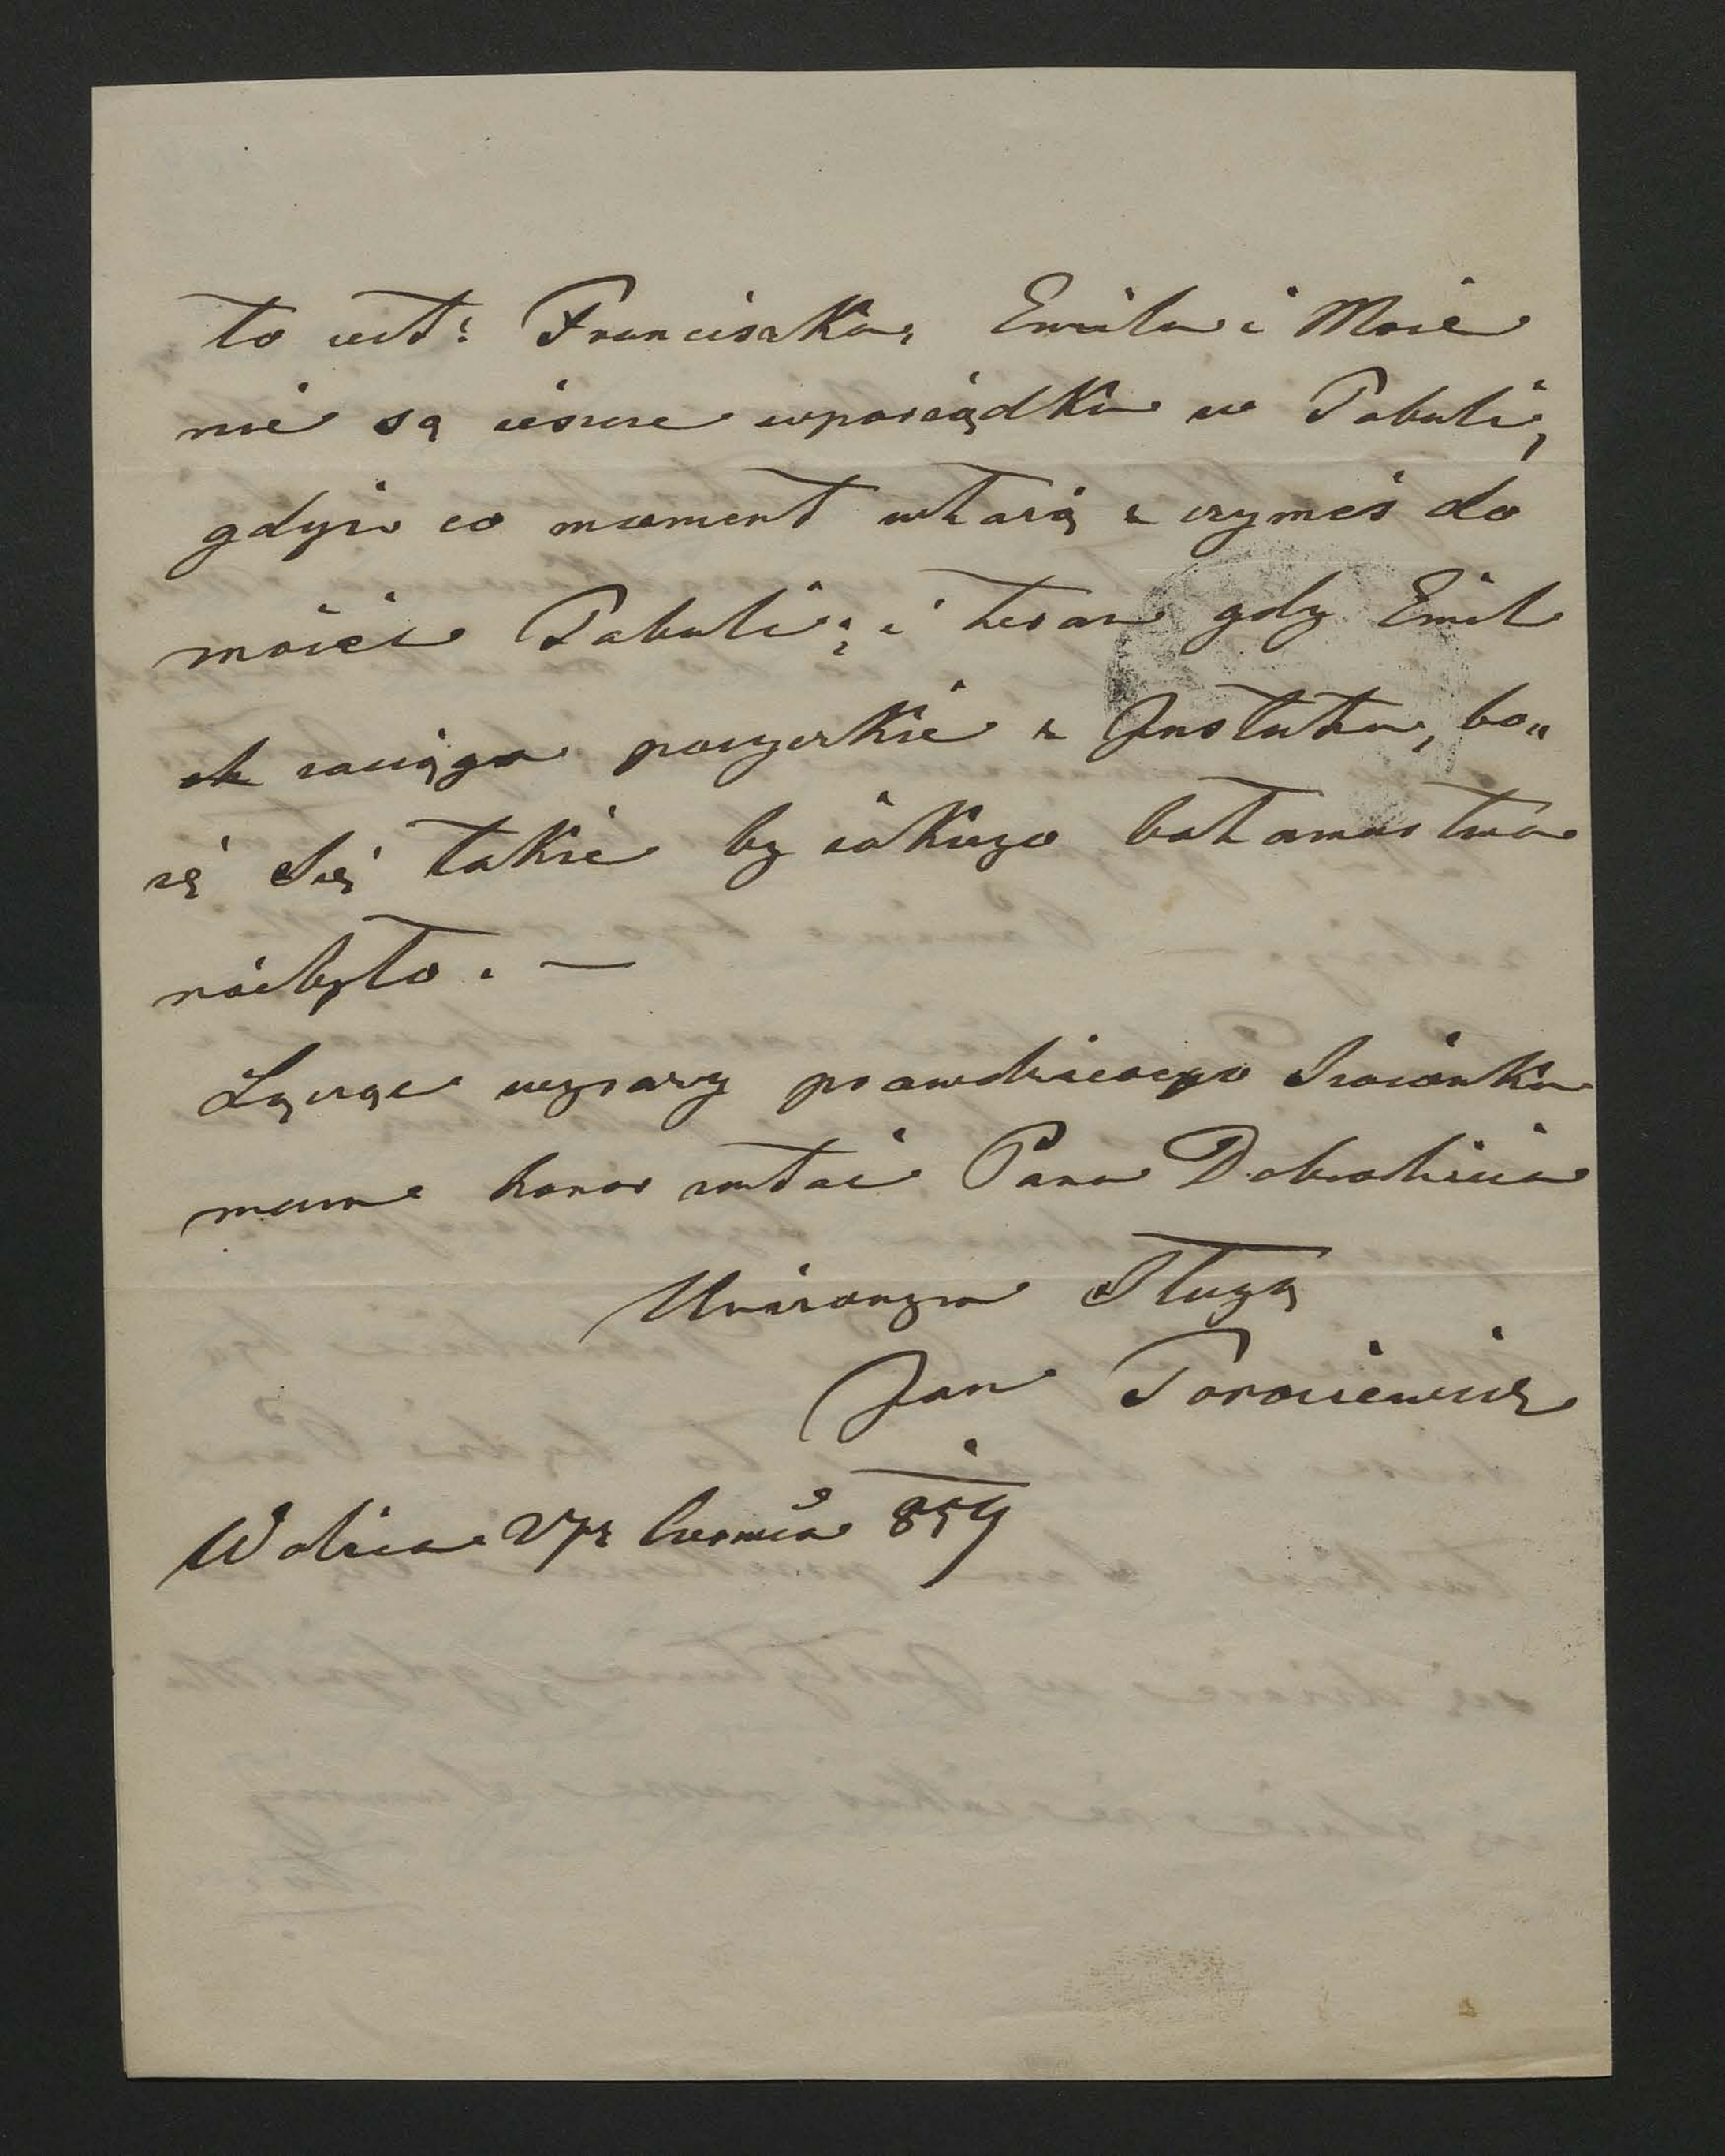 to iest: Franciszka, Emila i Moie
nie są ieszcze wporządku w Tabuli,
gdyż co moment włażą z czymeś do
moiei Tabuli; i teraz gdy Emil
zaciąga pożyczkie z Instututu, bo„
ię Się także by iakiego bałamustwa
niebyło. —
Łącząc wyrazy prawdziwego Szacunku
mam honor zostać Pana Dobrodzieia
Uniżonym Sługą
Jan Torosiewicz
Wolica 27 Czerwca 859